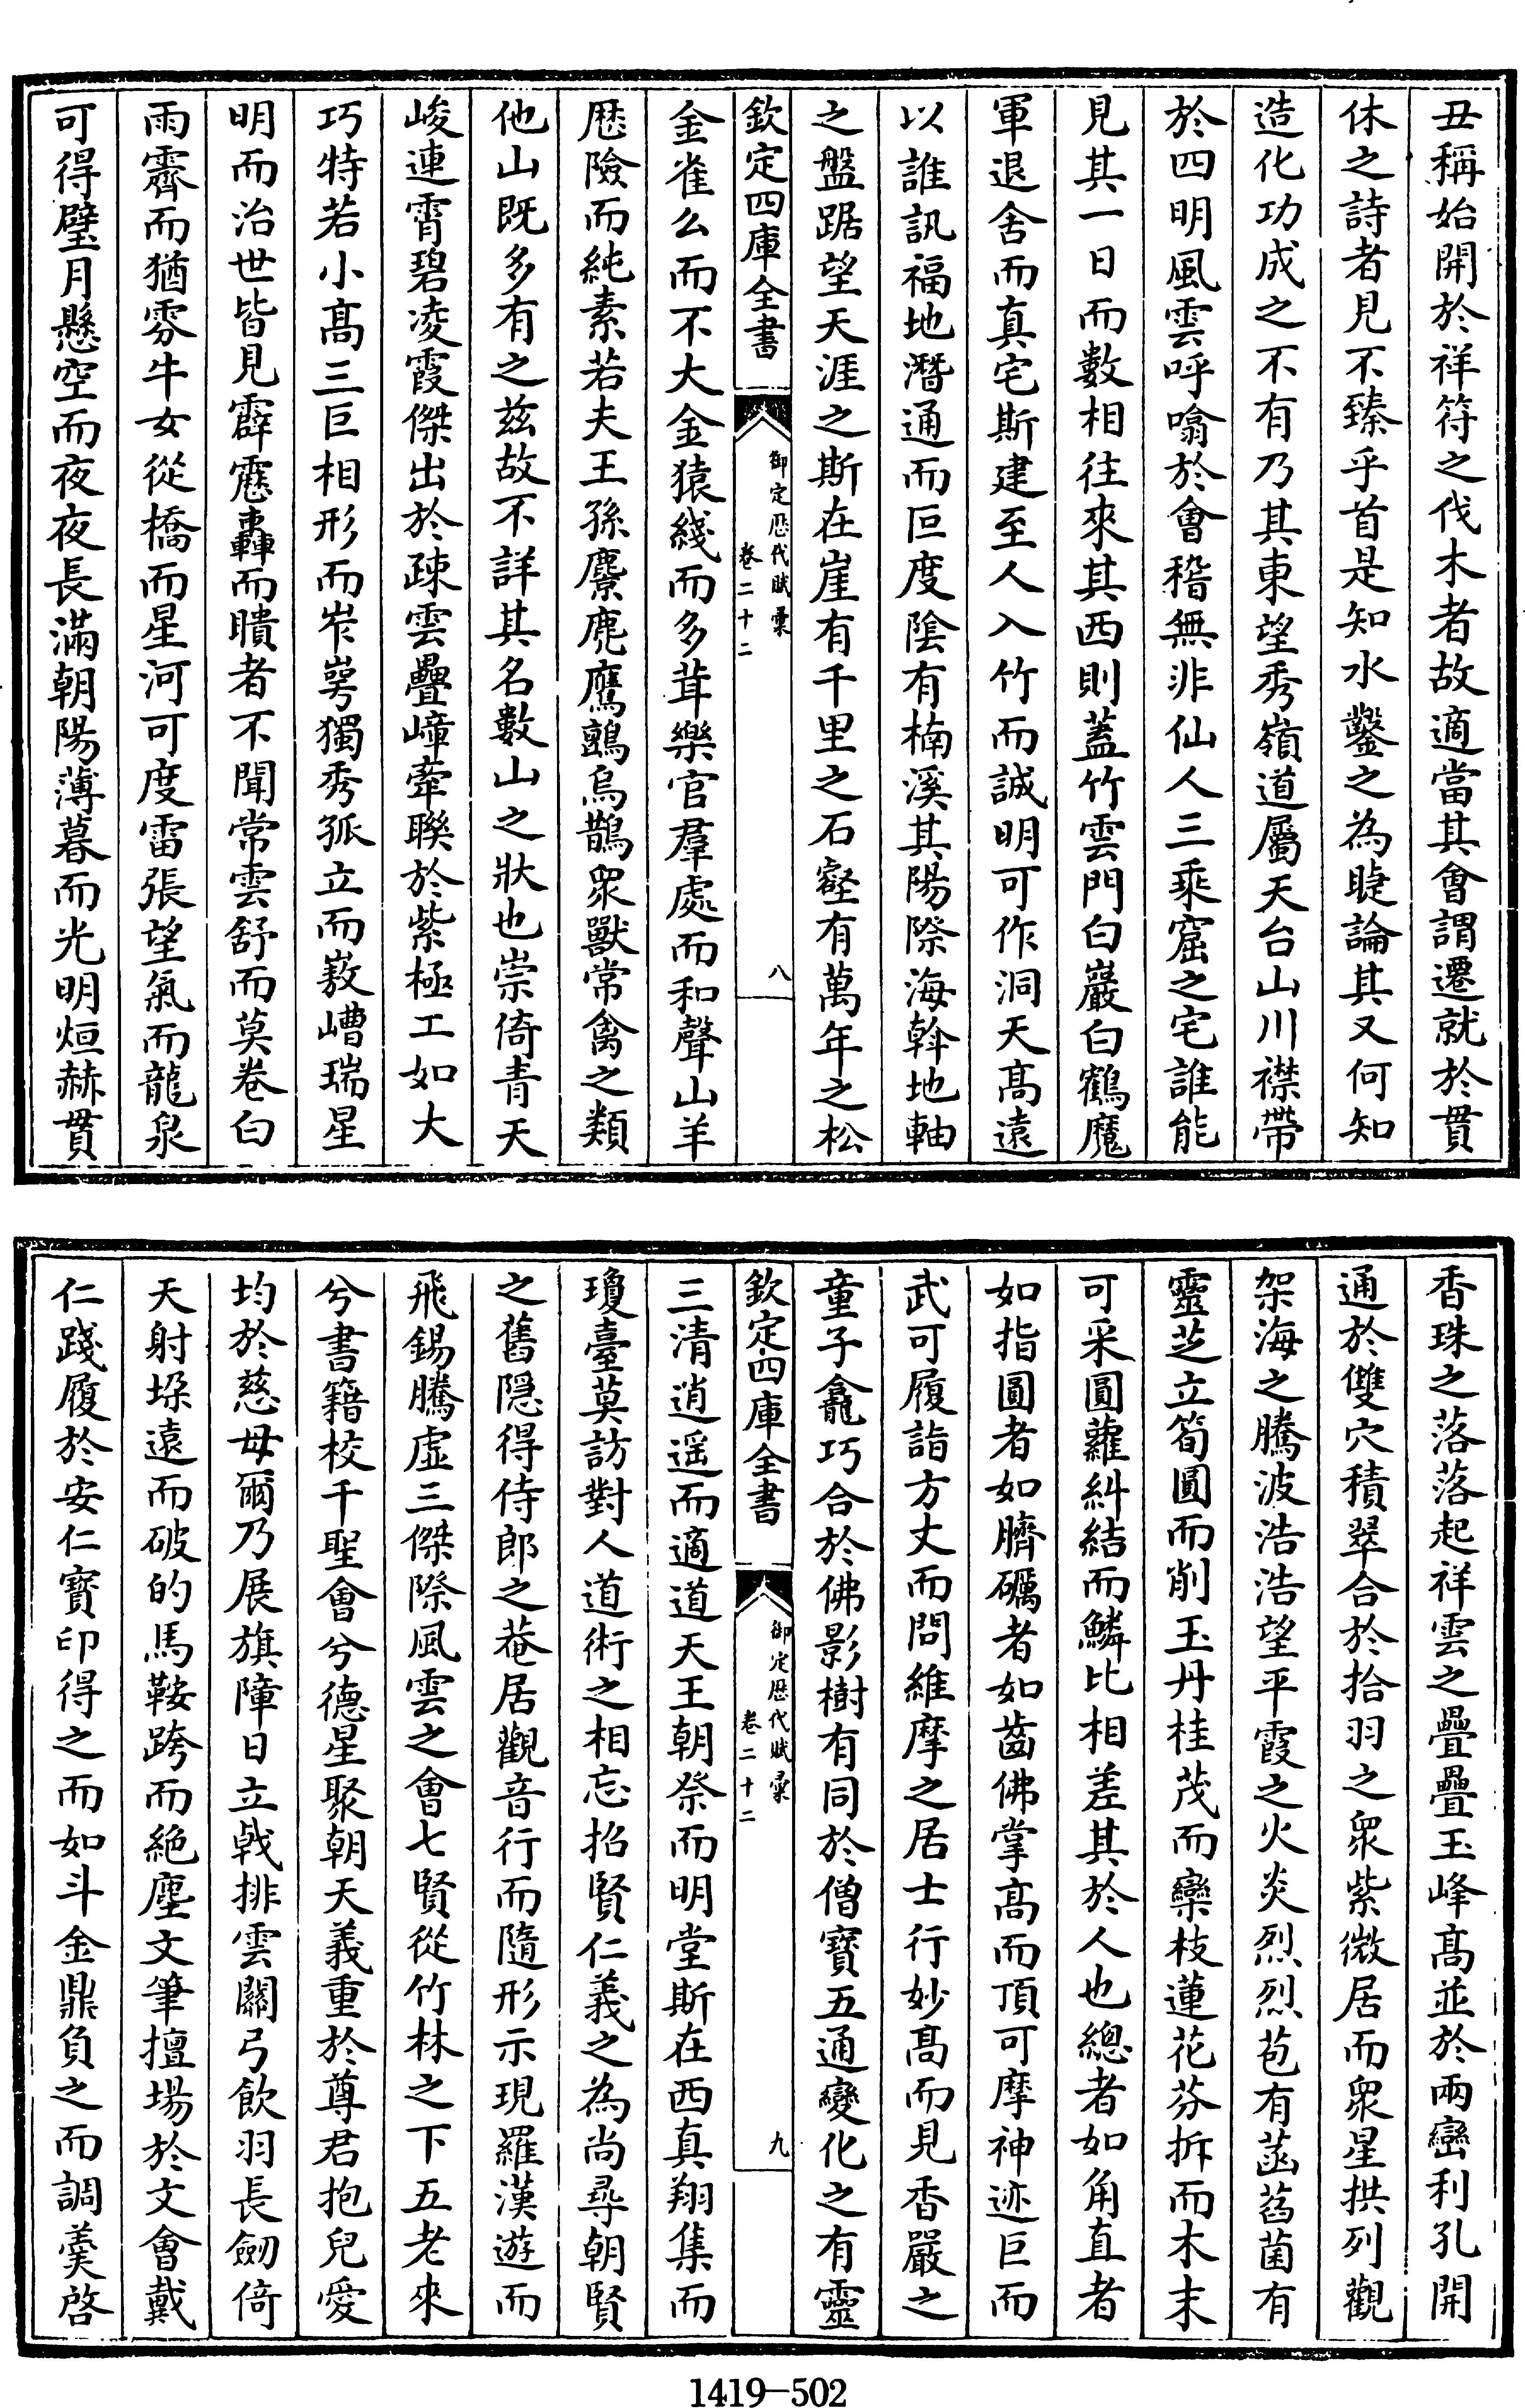 丑稱始開於祥符之伐木者故適當其會謂遷就於貫
休之詩者見不臻乎首是知水鑿之為睫論其又何知
造化功成之不有乃其東望秀嶺道屬天台山川襟帶
於四明風雲呼噏於會稽無非仙人三乘窟之宅誰能
見其一日而數相往來其西則蓋竹雲門白巖白鶴魔
軍退舍而真宅斯建至人入竹而誠明可作洞天髙遠
以誰訊福地潛通而叵度陰有楠溪其陽際海斡地軸
之盤踞望天涯之斯在崖有千里之石壑有萬年之松
欽定四庫全書
御定歷代賦彚
卷二十二
八
金雀么而不大金猿綫而多茸樂官羣處而和聲山羊
歷險而純素若夫王孫麖麂鷹鷂烏鵲衆獸常禽之類
他山既多有之兹故不詳其名數山之狀也崇倚青天
峻連霄碧凌霞傑出於疎雲疊嶂牽聯於紫極工如大
巧特若小髙三巨相形而岝崿獨秀孤立而嶅嶆瑞星
明而治世皆見霹靂轟而瞶者不聞常雲舒而莫卷白
雨霽而猶雰牛女從橋而星河可度雷張望氣而龍泉
可得璧月懸空而夜夜長滿朝陽薄暮而光明烜赫貫
香珠之落落起祥雲之疊疊玉峰髙並於兩巒利孔開
通於雙穴積翠合於拾羽之衆紫微居而衆星拱列觀
架海之騰波浩浩望平霞之火炎烈烈苞有菡萏菌有
靈芝立筍圓而削玉丹桂茂而欒枝蓮花芬拆而木末
可采圓蘿糾結而鱗比相差其於人也總者如角直者
如指圓者如臍礪者如齒佛掌髙而頂可摩神迹巨而
武可履詣方丈而問維摩之居士行妙髙而見香嚴之
童子龕巧合於佛影樹有同於僧寶五通變化之有靈
欽定四庫全書
御定歷代賦彚
卷二十二
九
三清逍遥而適道天王朝祭而明堂斯在西真翔集而
瓊臺莫訪對人道術之相忘招賢仁義之為尚尋朝賢
之舊隠得侍郎之菴居觀音行而隨形示現羅漢遊而
飛錫騰虚三傑際風雲之會七賢從竹林之下五老來
兮書籍校千聖會兮德星聚朝天義重於尊君抱兒愛
均於慈母爾乃展旗障日立戟排雲關弓飲羽長劒倚
天射垛遠而破的馬鞍跨而絶塵文筆擅場於文會戴
仁踐履於安仁寶印得之而如斗金鼎負之而調羹啓
1419—502